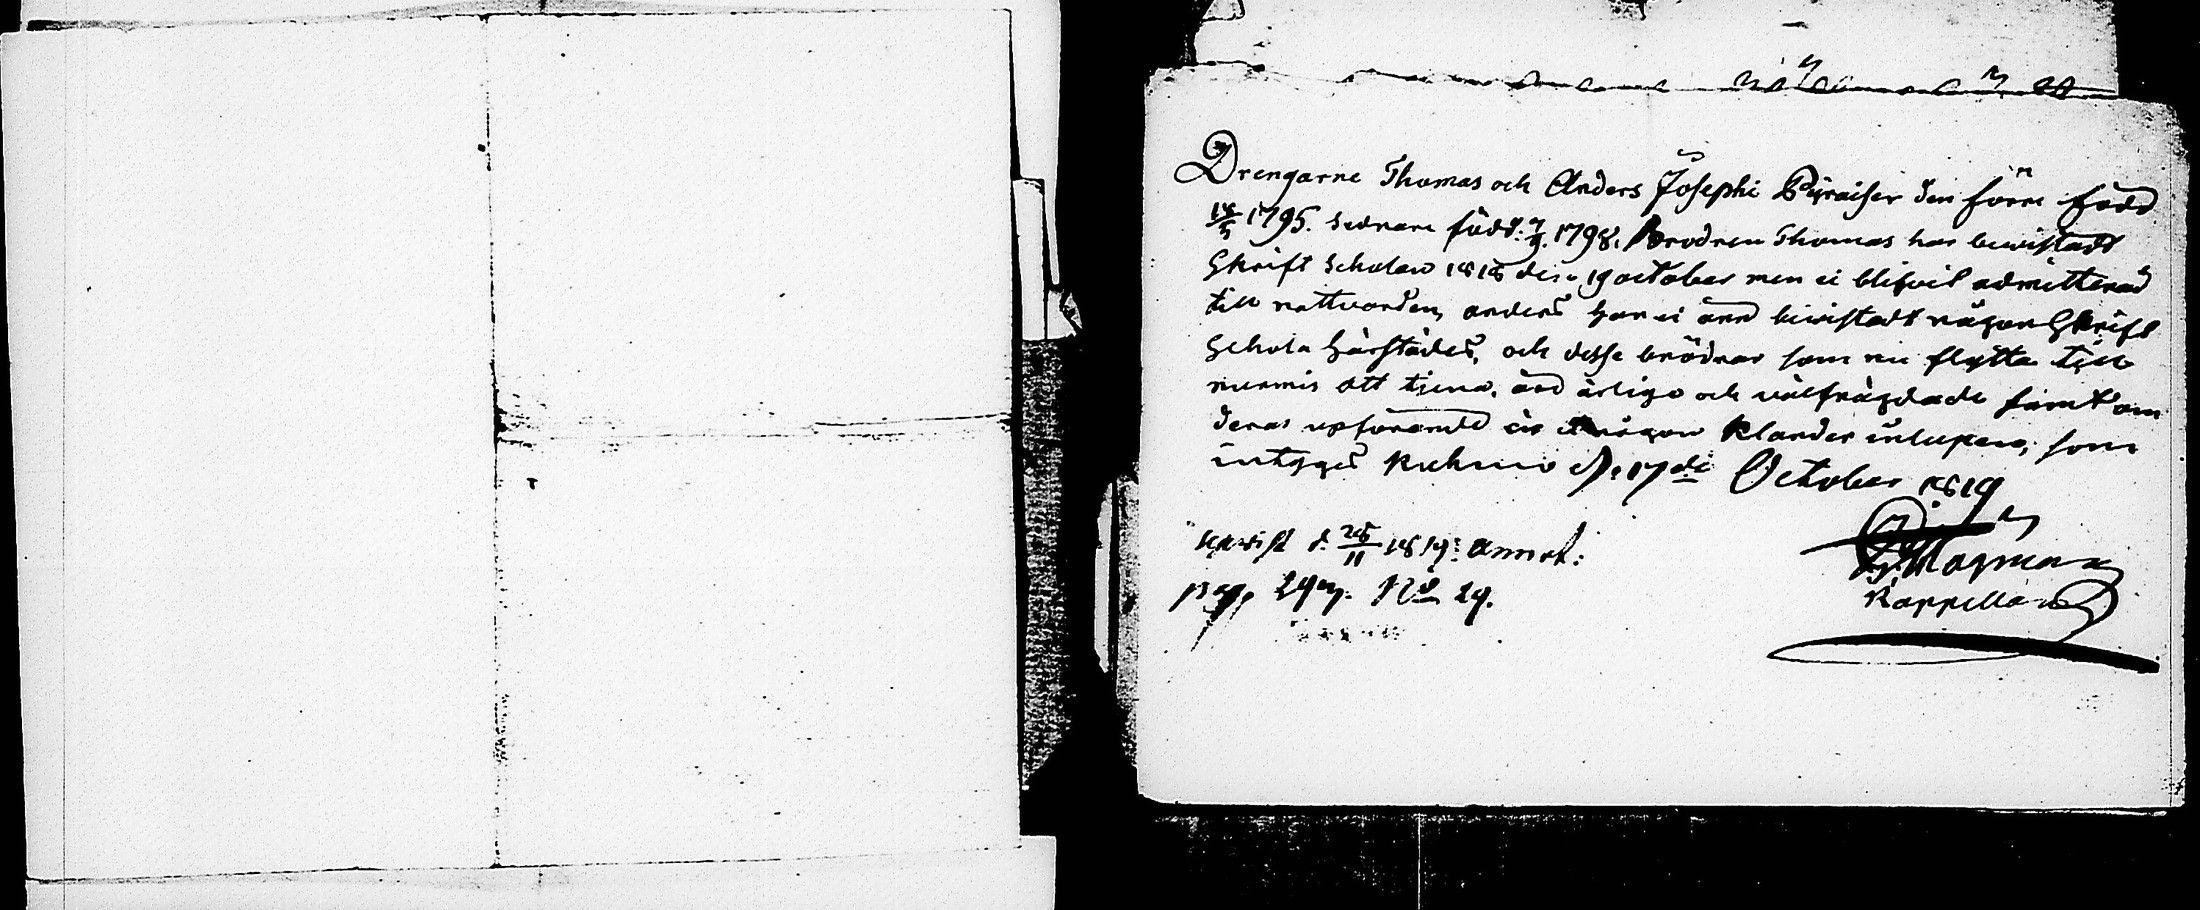 Drengarne Thomas och Anders Josephi Pyraiser den förre född
18/5 1795. sednare född: 7/9. 1798. Brodren Thomas har bewistadt
Skrift Scholan 1818 den 19 october men ei blifvit admitterad
till nattvarden, anders har ei änn bewistadt någon Skrift
Schola härstädes, och desse brödrar som nu flytta till
nurmis att tjena, äro ärlige och välfrägdade samt om
deras upförande är ei någon klander inlupen, som
intygas Kuhmo d. 17de October 1819
Magman
Kappellan
upvist d. 28/11 1819: annot:
pag. 297. No 29.